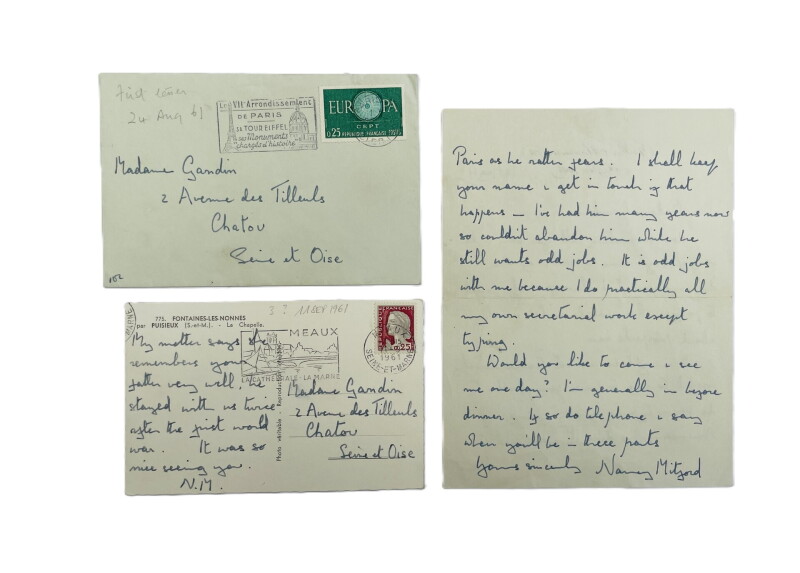 First letter
24 Aug 61
Le VIIe Arrondissement
DE PARIS
LA TOUR EIFFEL
ses Monuments
chargés d'histoire
EUROPA
CEPT
0,25 REPUBLIQUE FRANÇAISE POSTES
Madame Gandin
2 Avenue des Tilleuls
Chatou
Seine et Oise
102
775. FONTAINES-LES-NONNES
par PUISIEUX (S.-et-M.). - La Chapelle.
My mother says she
remembers your
father very well, he
stayed with us twice
after the first world
war. It was so
nice seeing you.
N.M.
1961
MEAUX
LA CATHÉDRALE - LA MARNE
REPUBLIQUE FRANÇAISE
0,25
1961
SEINE-ET-MARNE
Photo véritable - Reproduction
Madame Gandin
2 Avenue des Tilleuls
Chatou
Seine et Oise
Paris as he rather fears. I shall keep
your name & get in touch if that
happens — I've had him many years now
so couldn't abandon him while he
still wants odd jobs. It is odd jobs
with me because I do practically all
my own secretarial work except
typing.
Would you like to come & see
me one day? I'm generally in before
dinner. If so do telephone & say
when you'll be in these parts
Yours sincerely Nancy Mitford